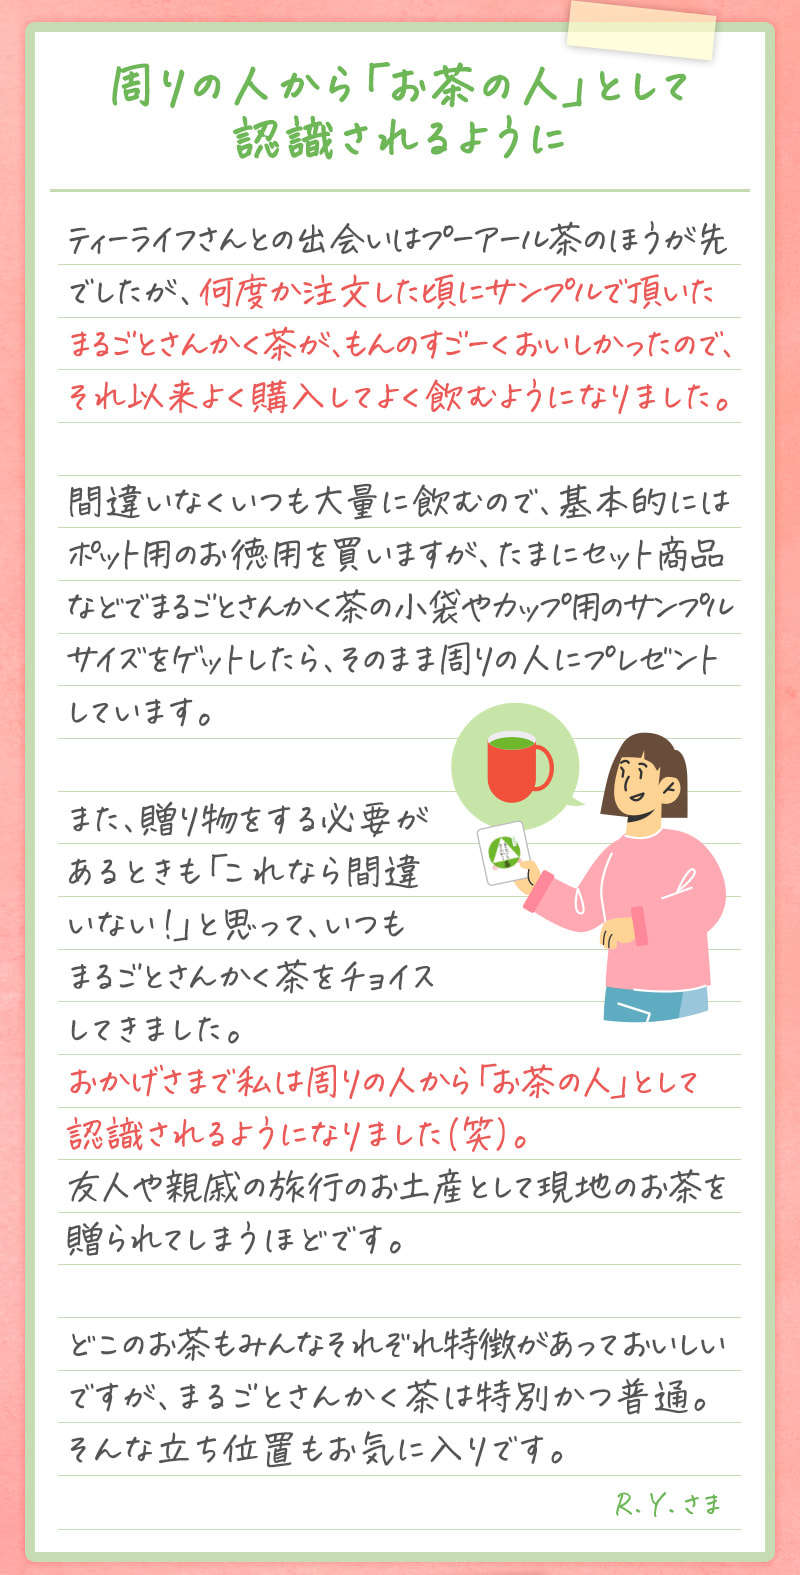 周りの人から「お茶の人」として
認識されるように
ティーライフさんとの出会いはプーアール茶のほうが先
でしたが、何度か注文した頃にサンプルで頂いた
まるごとさんかく茶が、もんのすごーくおいしかったので、
それ以来よく購入してよく飲むようになりました。
間違いなくいつも大量に飲むので、基本的には
ポット用のお徳用を買いますが、たまにセット商品
などでまるごとさんかく茶の小袋やカップ用のサンプル
サイズをゲットしたら、そのまま周りの人にプレゼント
しています。
また、贈り物をする必要が
あるときも「これなら間違
いない！」と思って、いつも
まるごとさんかく茶をチョイス
してきました。
おかげさまで私は周りの人から「お茶の人」として
認識されるようになりました(笑)。
友人や親戚の旅行のお土産として現地のお茶を
贈られてしまうほどです。
どこのお茶もみんなそれぞれ特徴があっておいしい
ですが、まるごとさんかく茶は特別かつ普通。
そんな立ち位置もお気に入りです。
R.Y.さま